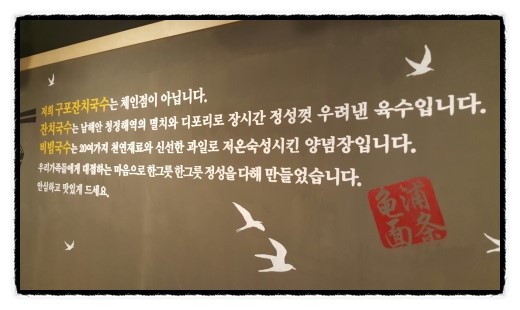 저희 구포잔치국수는 체인점이 아닙니다.
잔치국수는 남해안 청정해역의 멸치와 디포리로 장시간 정성껏 우려낸 육수입니다.
비빔국수는 20여가지 천연재료와 신선한 과일로 저온숙성시킨 양념장입니다.
우리가족들에게 대접하는 마음으로 한그릇 한그릇 정성을 다해 만들었습니다.
안심하고 맛있게 드세요.
龟浦
面条